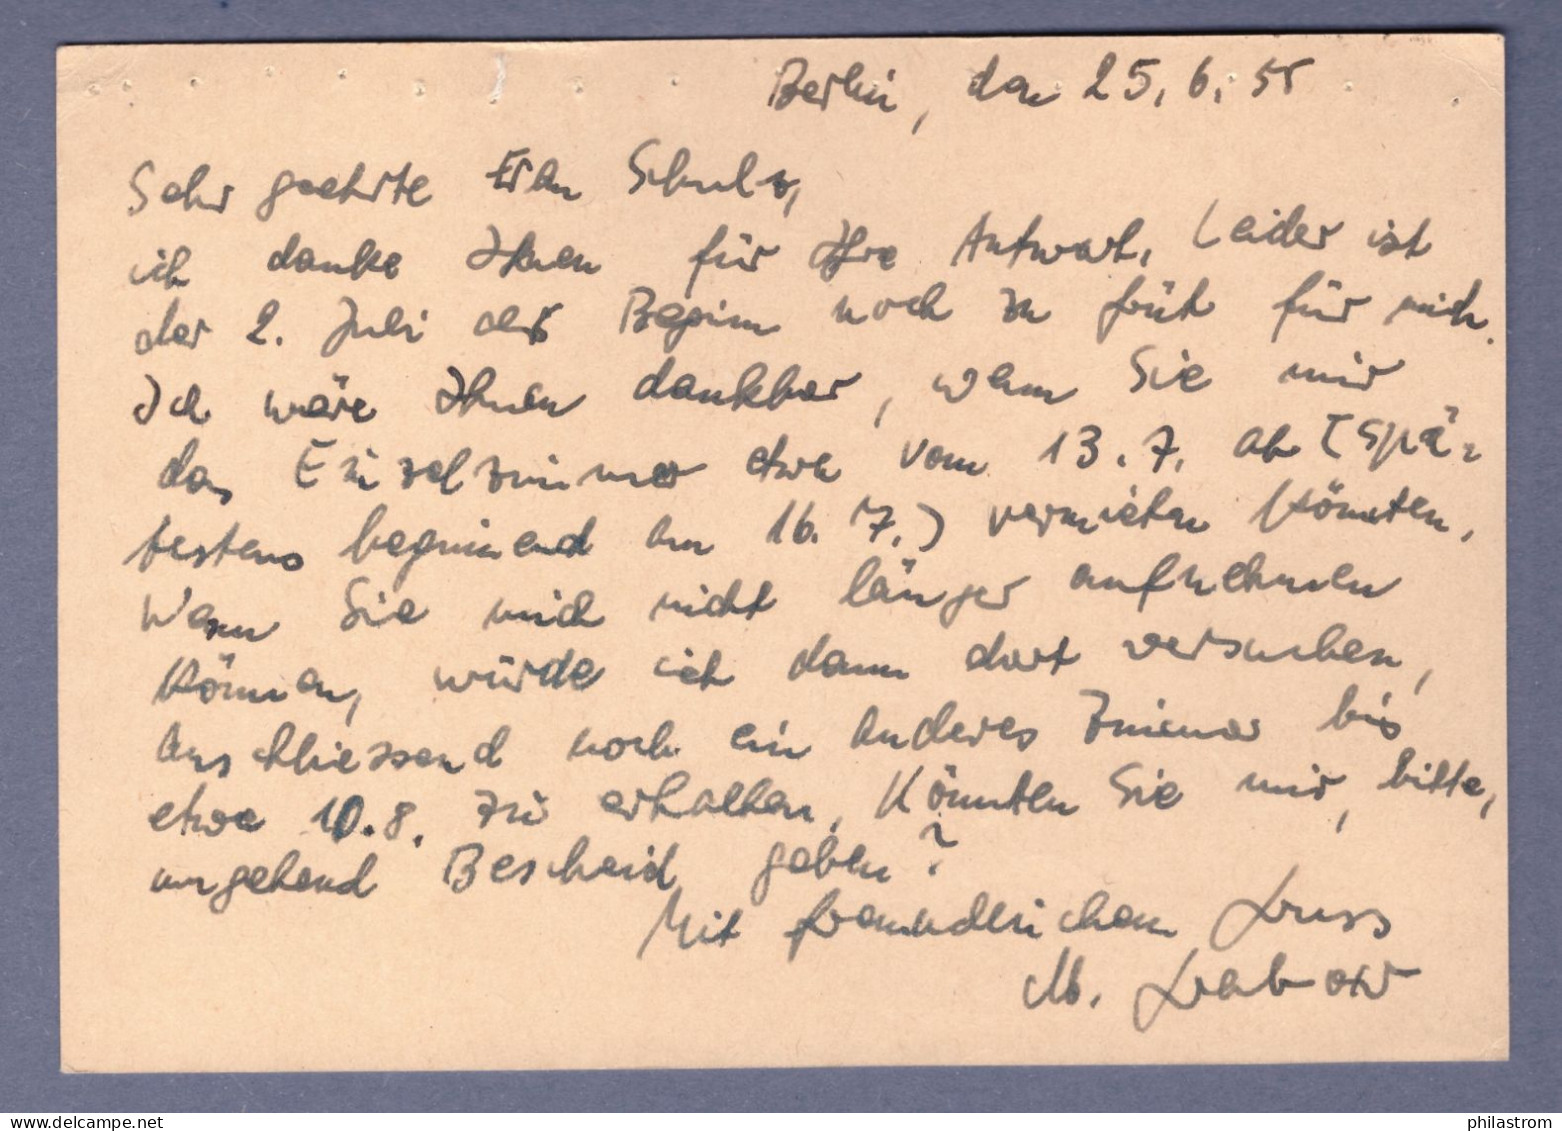 Berlin, den 25.6.55
Sehr geehrte Frau Schulz,
ich danke Ihnen für Ihre Antwort. Leider ist
der 2. Juli als Beginn noch zu früh für mich.
Ich wäre Ihnen dankbar, wenn Sie mir
das Einzelzimmer etwa vom 13.7. ab (spä-
testens beginnend am 16.7.) vermieten könnten.
Wenn Sie mich nicht länger aufnehmen
können, würde ich dann dort versuchen,
anschliessend noch ein anderes Zimmer bis
etwa 10.8. zu erhalten. Könnten Sie mir, bitte,
umgehend Bescheid geben?
Mit freundlichem Gruss
M. Grabow
www.delcampe.net
philastrom